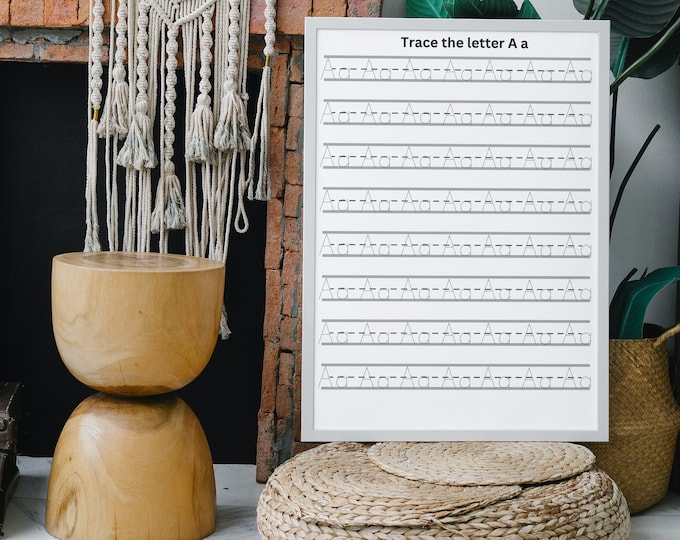 Trace the letter A a
Aa Aa Aa Aa Aa Aa Aa
Aa Aa Aa Aa Aa Aa Aa
Aa Aa Aa Aa Aa Aa Aa
Aa Aa Aa Aa Aa Aa Aa
Aa Aa Aa Aa Aa Aa Aa
Aa Aa Aa Aa Aa Aa Aa
Aa Aa Aa Aa Aa Aa Aa
Aa Aa Aa Aa Aa Aa Aa